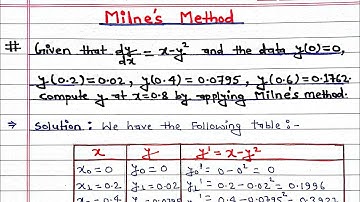 Milne's Method
# Given that dy/dx = x-y² and the data y(0)=0,
y(0.2)=0.02, y(0.4)=0.0795, y(0.6)=0.1762
compute y at x=0.8 by applying Milne's method.
⇒ Solution: We have the following table:-
x y y' = x-y²
x₀=0 y₀=0 y₀' = 0-0² = 0
x₁=0.2 y₁=0.02 y₁' = 0.2-0.02² = 0.1996